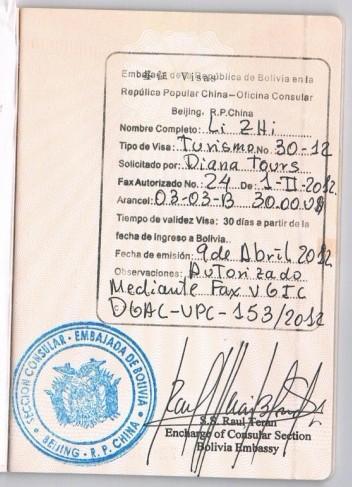 Visas
Embajada de la República de Bolivia en la
República Popular China-Oficina Consular
Beijing, R.P.China
Nombre Completo: Li ZHi
Tipo de Visa: Turismo No. 30-12
Solicitado por: Diana Tours
Fax Autorizado No. 24 De: 1-II-2012
Arancel: 03-03-B 30.00 U$
Tiempo de validez Visa: 30 días a partir de la
fecha de ingreso a Bolivia..
Fecha de emisión: 9 de Abril 2012
Observaciones: Autorizado
Mediante Fax VGIC
DGAC-UPC-153/2012
SECCION CONSULAR - EMBAJADA DE BOLIVIA
BEIJING - R.P. CHINA
S.S. Raul Teran
Encharge of Consular Section
Bolivia Embassy